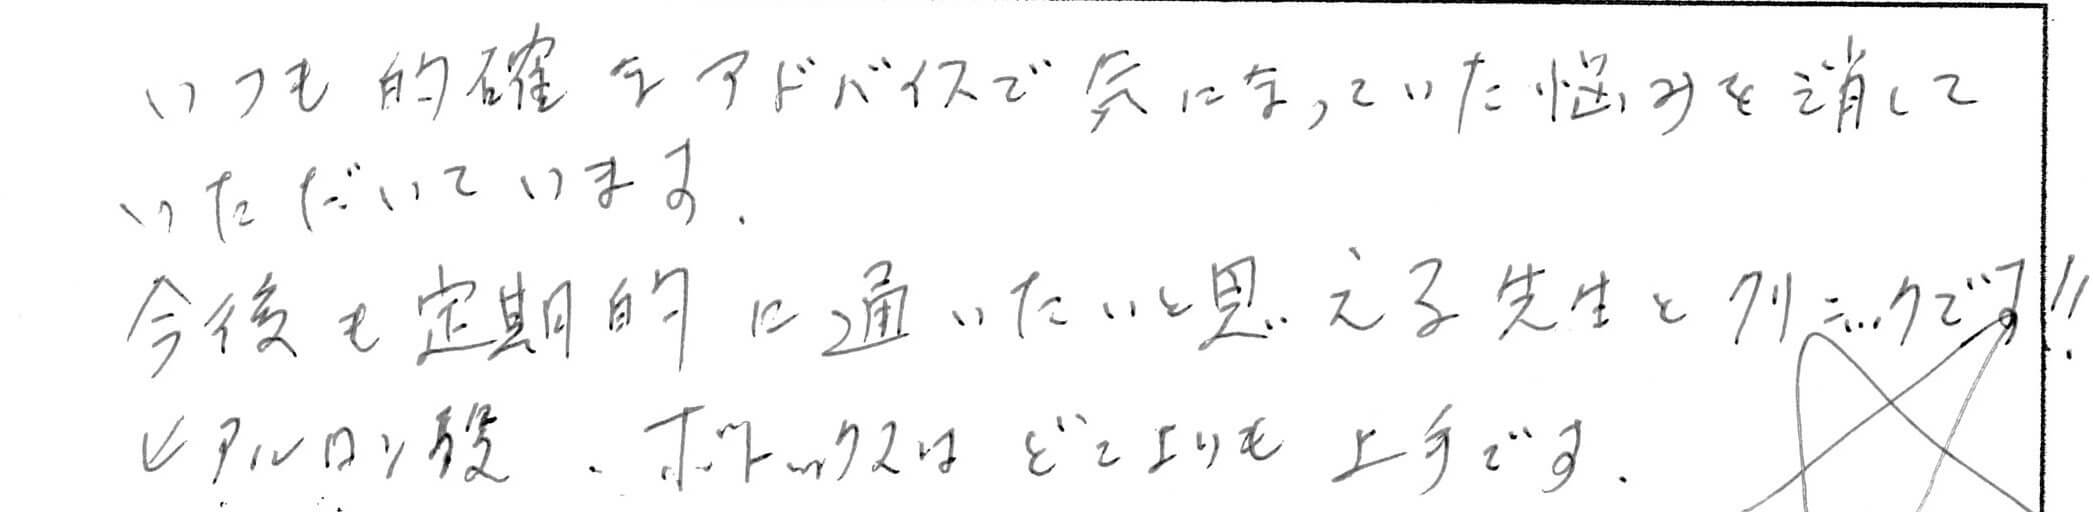 いつも的確なアドバイスで気になっていた悩みを消して
いただいています.
今後も定期的に通いたいと思える先生とクリニックです!!
ヒアルロン酸、ボトックスはどこよりも上手です.